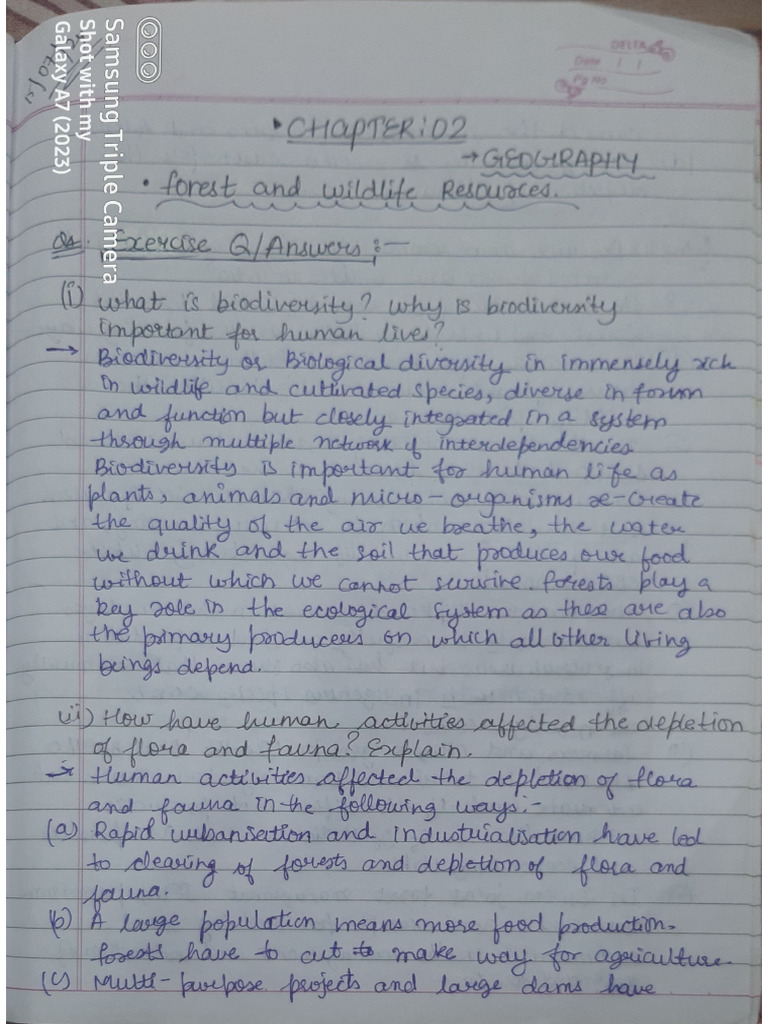 DELTA
Date
Pg No
Samsung Triple Camera
Shot with my
Galaxy A7 (2023)
• CHAPTER: 02
→ GEOGRAPHY
• forest and wildlife Resources.
Qs. Exercise Q/Answers :-
(i) what is biodiversity? why is biodiversity
important for human lives?
→ Biodiversity or Biological diversity in immensely rich
in wildlife and cultivated species, diverse in form
and function but closely integrated in a system
through multiple network of interdependencies
Biodiversity is important for human life as
plants, animals and micro-organisms re-create
the quality of the air we breathe, the water
we drink and the soil that produces our food
without which we cannot survive. forests play a
key role in the ecological system as these are also
the primary producers on which all other living
beings depend.
ii) How have human activities affected the depletion
of flora and fauna? Explain.
→ Human activities affected the depletion of flora
and fauna in the following ways:-
(a) Rapid urbanisation and industrialisation have led
to clearing of forests and depletion of flora and
fauna.
(b) A large population means more food production.
forests have to cut to make way for agriculture.
(c) Multi-purpose projects and large dams have